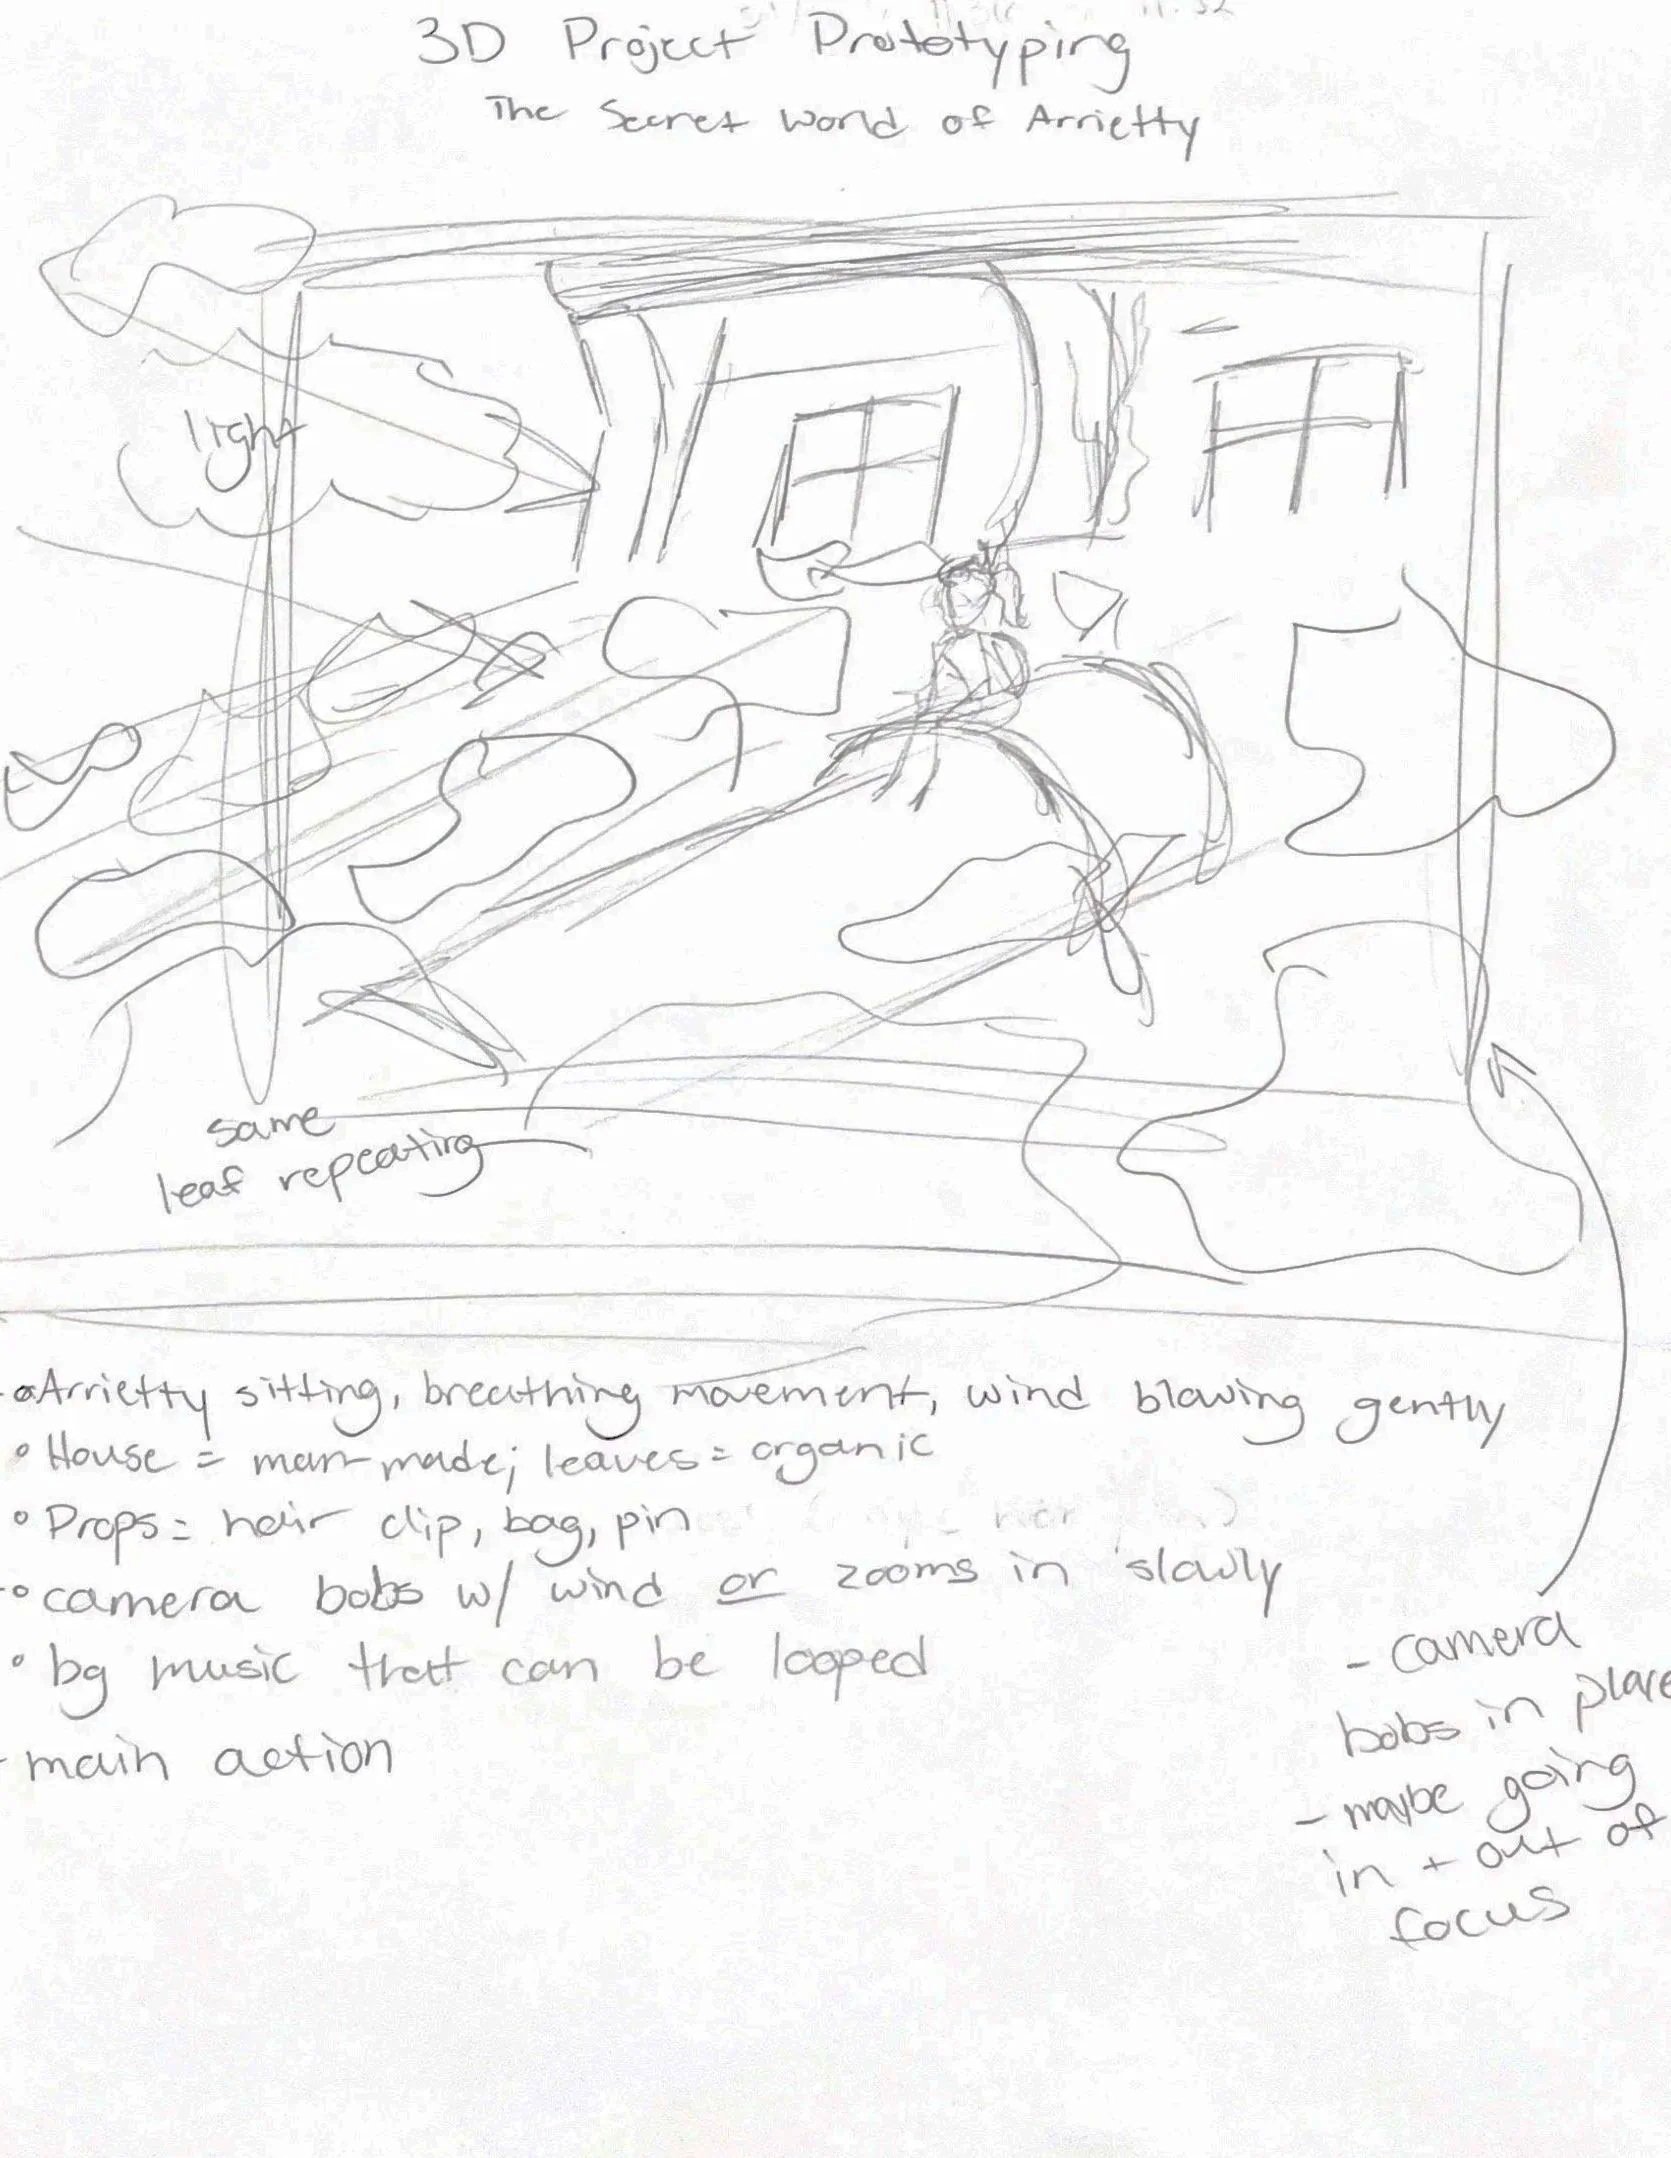 3D Project Prototyping
The Secret World of Arrietty
light
same
leaf repeating
- Arrietty sitting, breathing movement, wind blowing gently
• House = man-made; leaves = organic
• Props = hair clip, bag, pin
-• camera bobs w/ wind or zooms in slowly
• bg music that can be looped
- main action
- camera
bobs in place
- maybe going
in + out of
focus